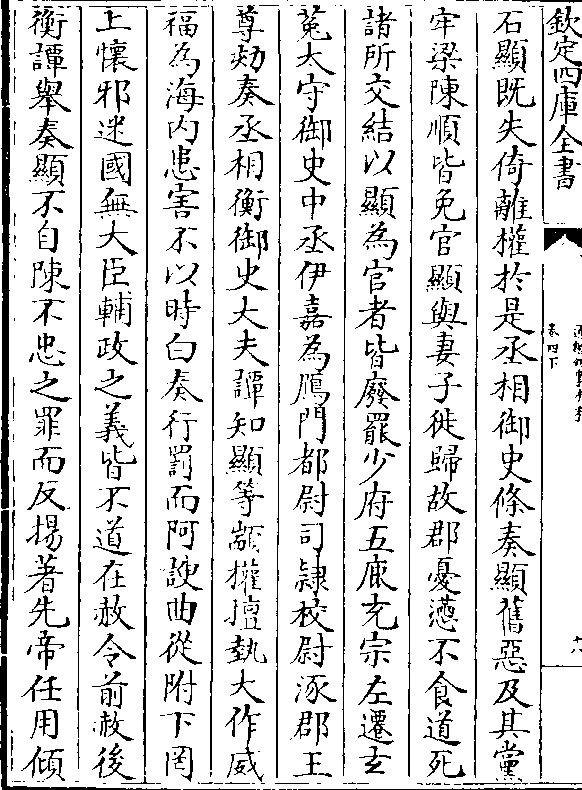 欽定四庫全書
卷四下
石顯既失倚離權於是丞相御史條奏顯舊惡及其黨
牢梁陳順皆免官顯與妻子徙歸故郡憂懣不食道死
諸所交結以顯為官者皆廢罷少府五鹿充宗左遷玄
菟太守御史中丞伊嘉為鴈門都尉司隷校尉涿郡王
尊劾奏丞相衡御史大夫譚知顯等顓權擅埶大作威
福為海内患害不以時白奏行罰而阿諛曲從附下罔
上懷邪迷國無大臣輔政之義皆不道在赦令前赦後
衡譚舉奏顯不自陳不忠之罪而反揚著先帝任用傾